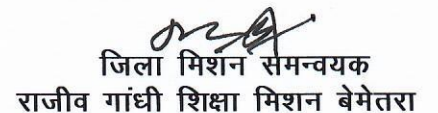 जिला मिशन समन्वयक
राजीव गांधी शिक्षा मिशन बेमेतरा